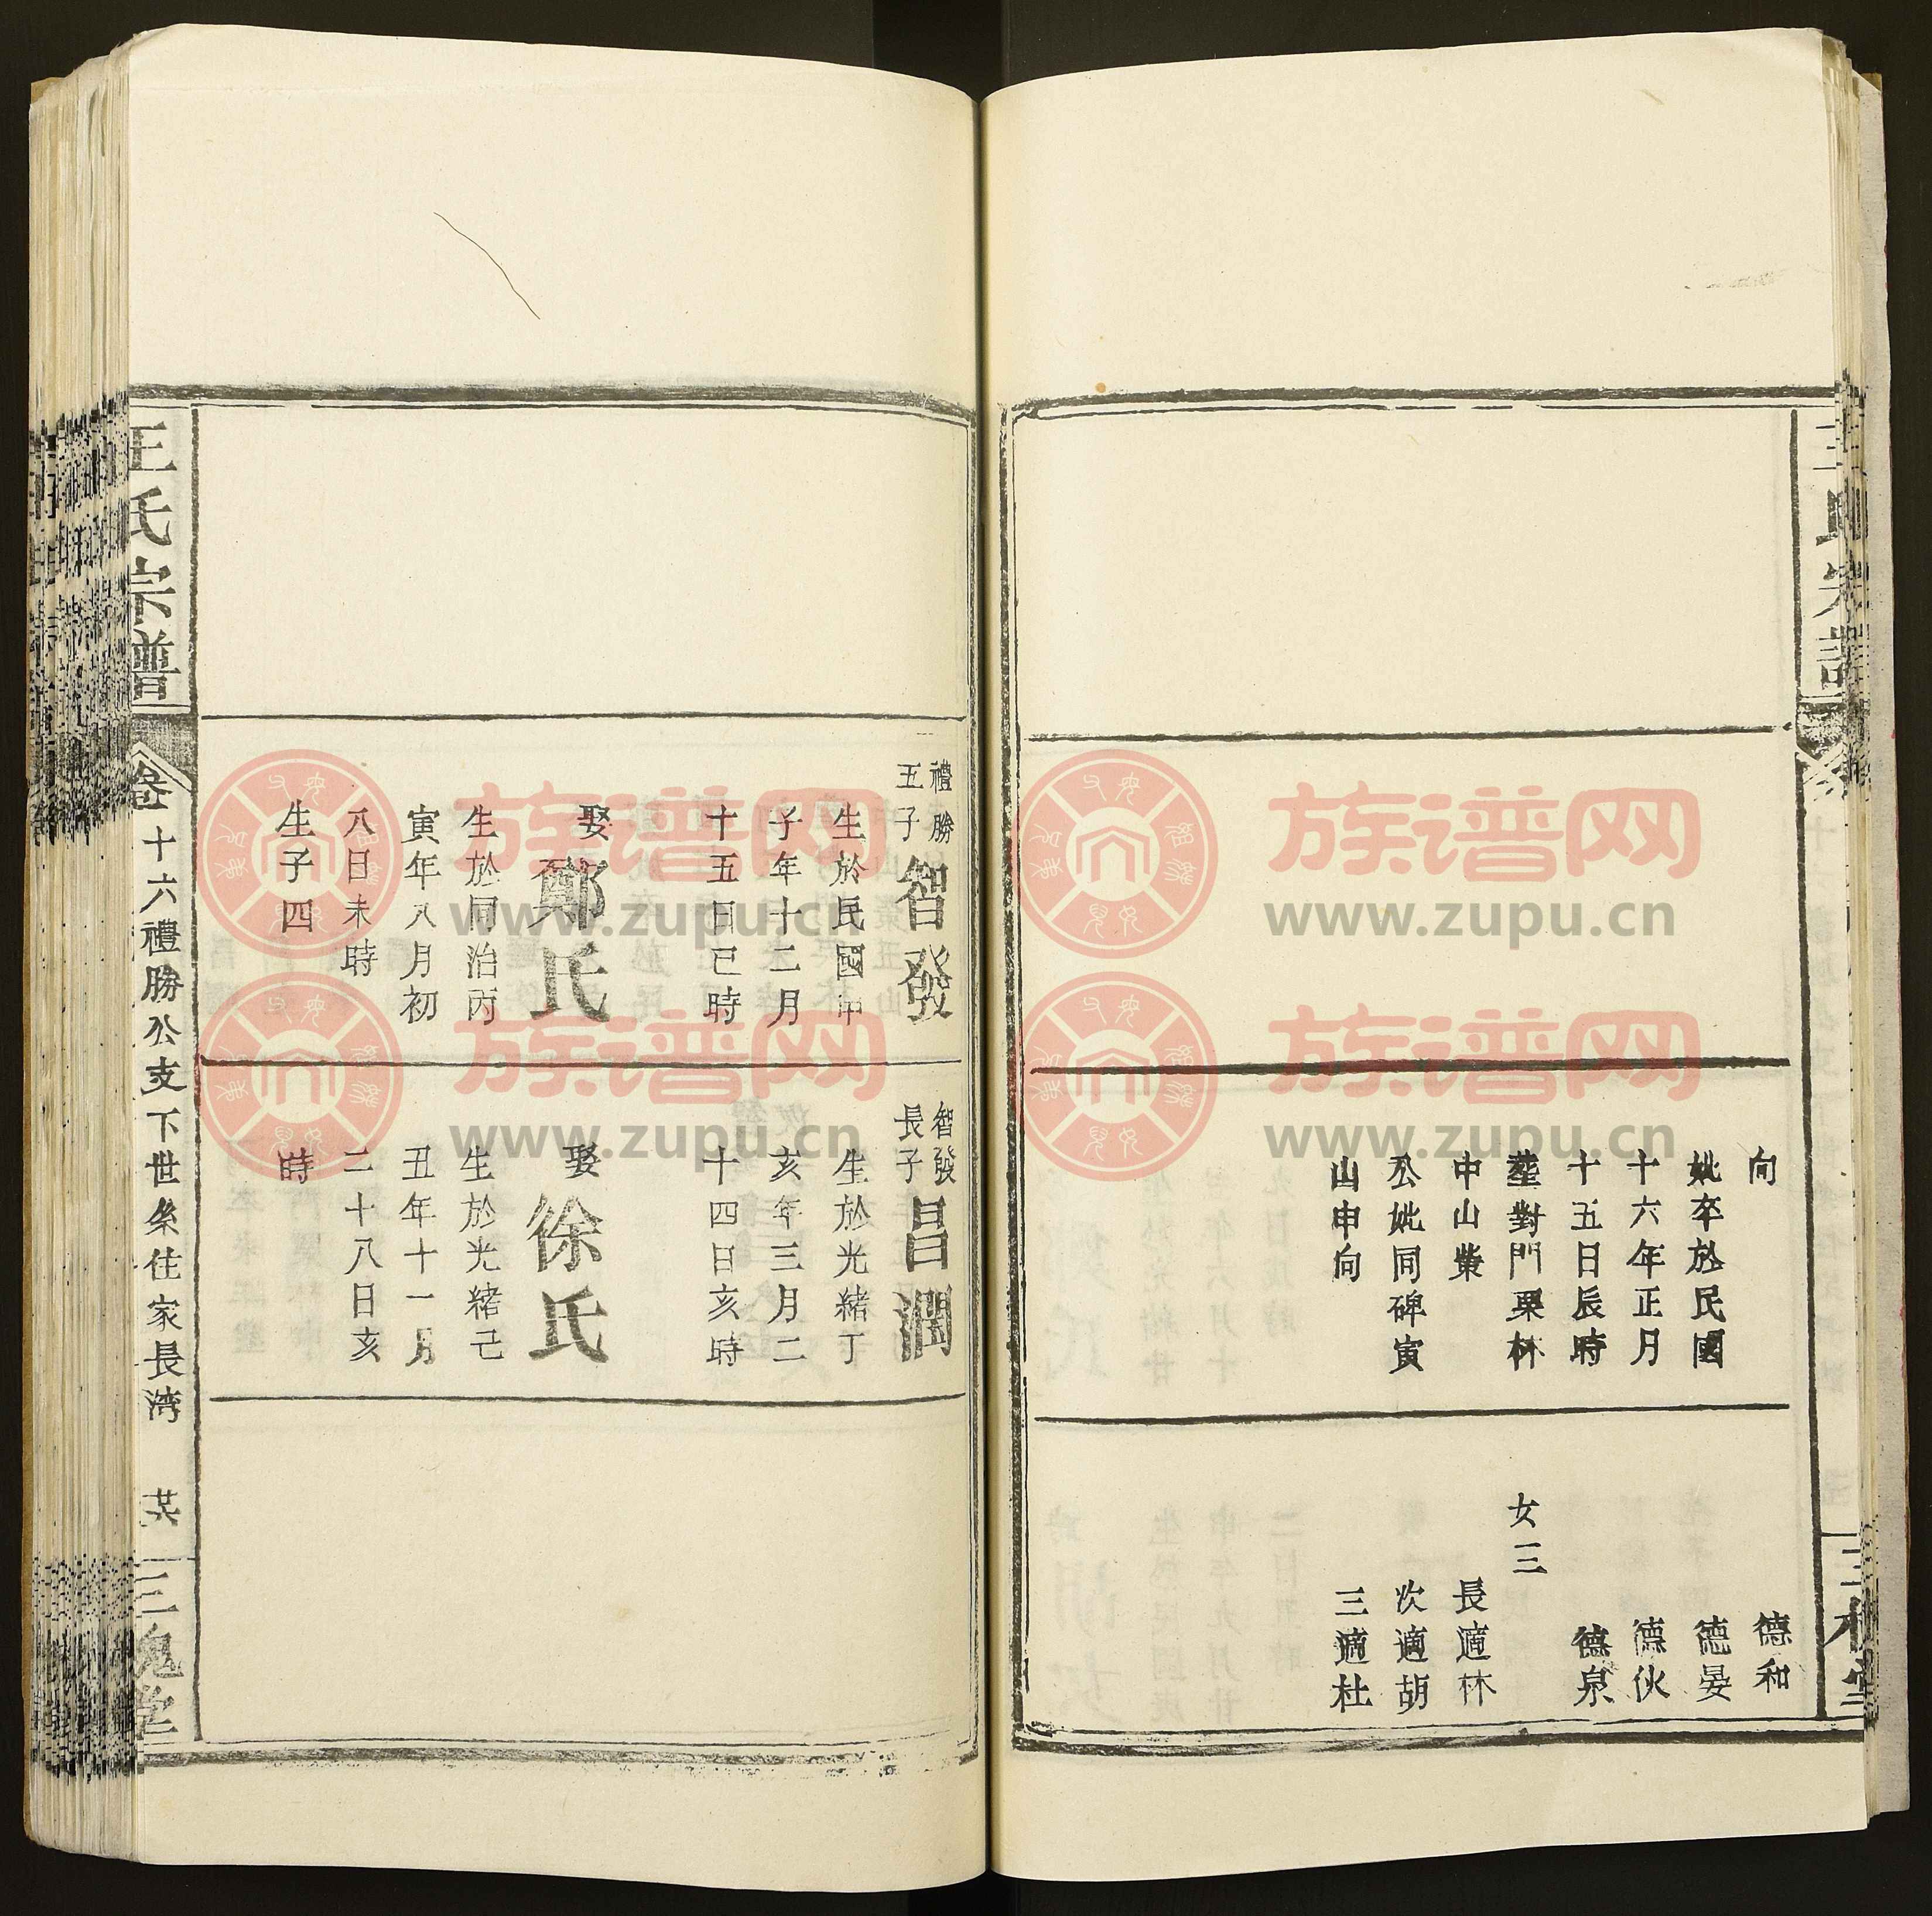 向
妣卒於民國
十六年正月
十五日辰時
塟對門栗林
中山業
公妣同碑寅
山申向
德和
德晏
德伙
德泉
女三
長適林
次適胡
三適杜
禮勝
五子
智發
生於民國甲
子年十二月
十五日巳時
娶
鄭氏
生於同治丙
寅年八月初
八日未時
生子四
智發
長子
昌潤
生於光緒丁
亥年三月二
十四日亥時
娶
徐氏
生於光緒己
丑年十一月
二十八日亥
時
王氏宗譜
卷十六禮勝公支下世系住家長湾
三槐堂
族谱网
www.zupu.cn
族谱网
www.zupu.cn
族谱网
www.zupu.cn
族谱网
www.zupu.cn